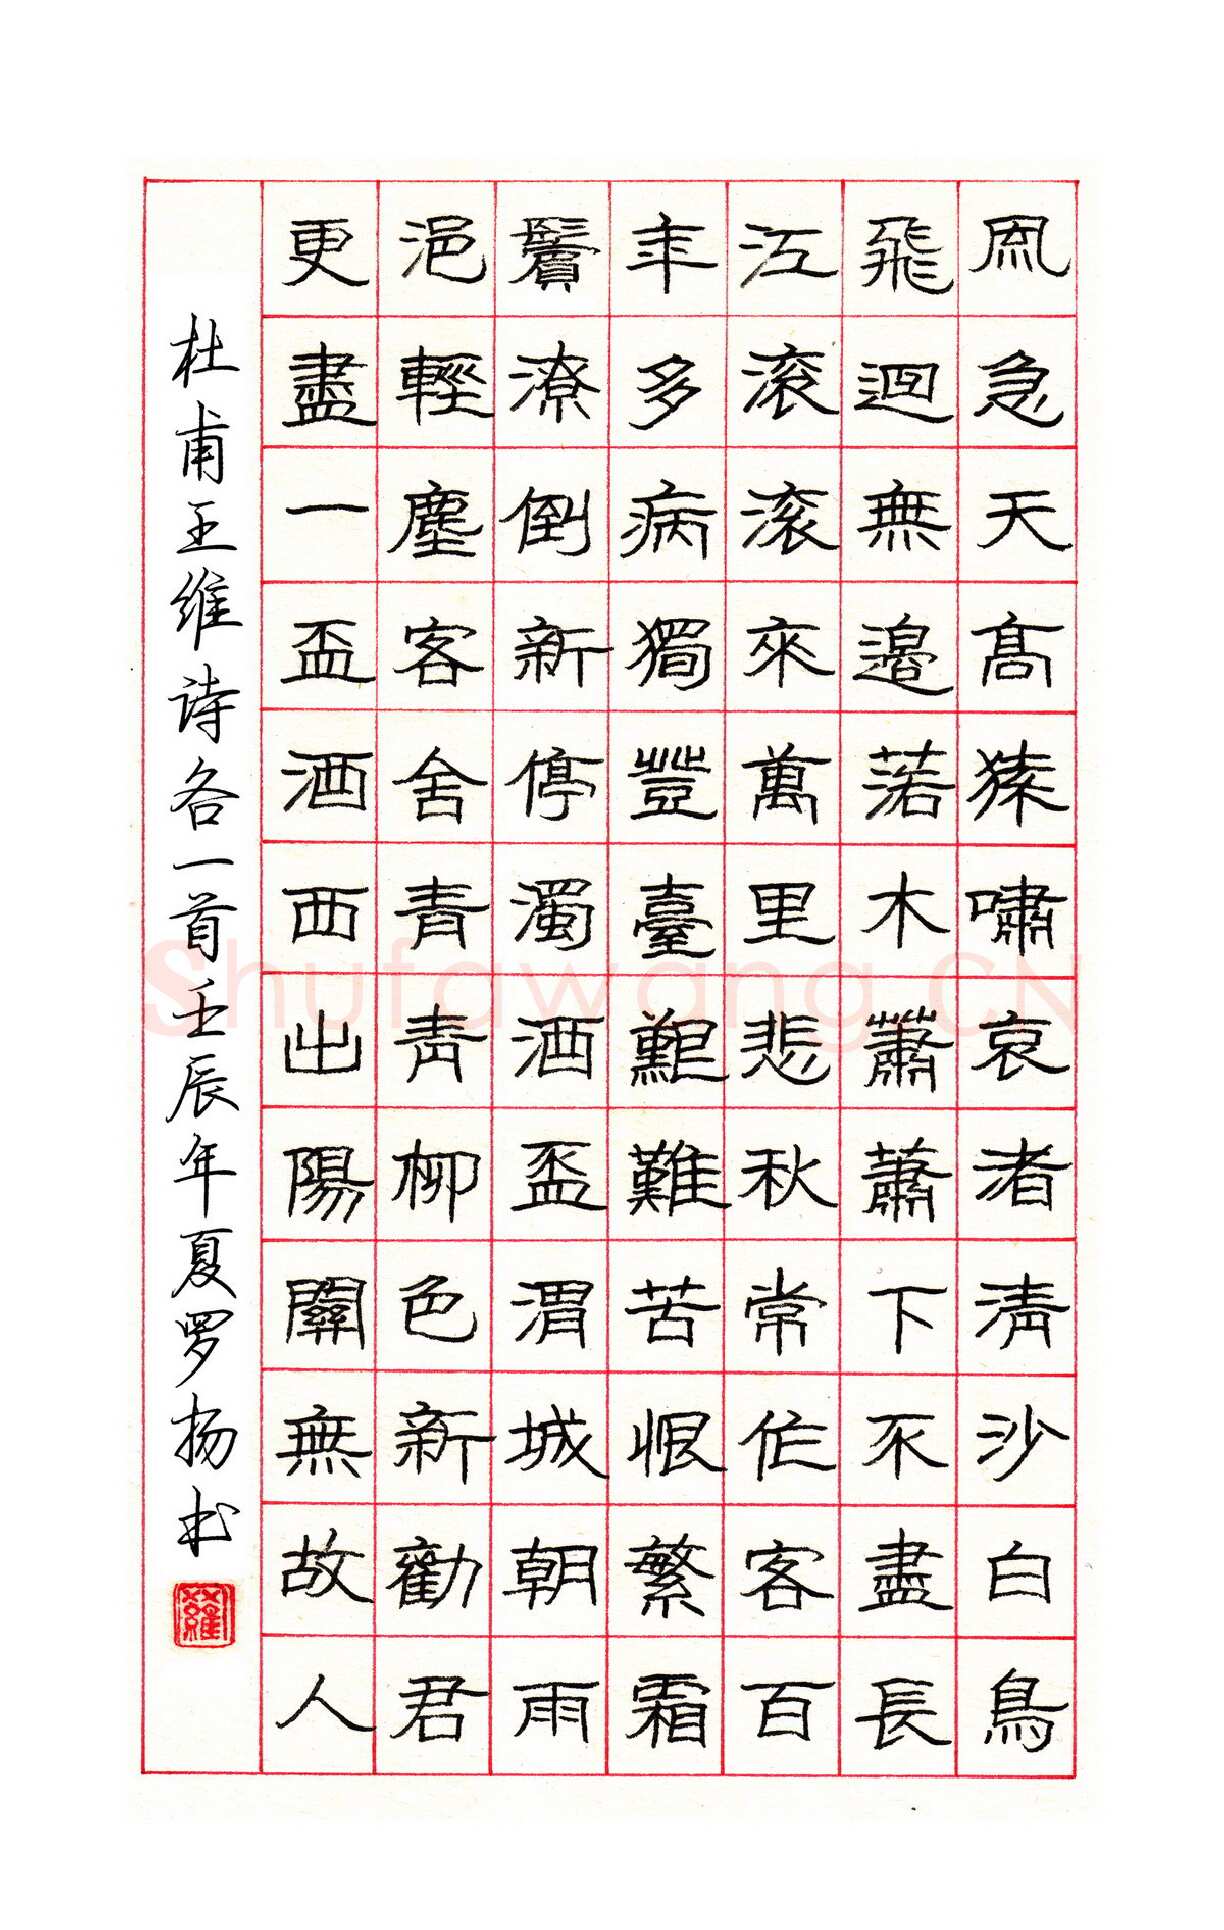 風急天高猿嘯哀渚清沙白鳥
飛迴無邊落木蕭蕭下不盡長
江滾滾來萬里悲秋常作客百
年多病獨登臺艱難苦恨繁霜
鬢潦倒新停濁酒盃渭城朝雨
浥輕塵客舍青青柳色新勸君
更盡一盃酒西出陽關無故人
杜甫王维诗各一首壬辰年夏罗扬书
羅
Shufawang.CN